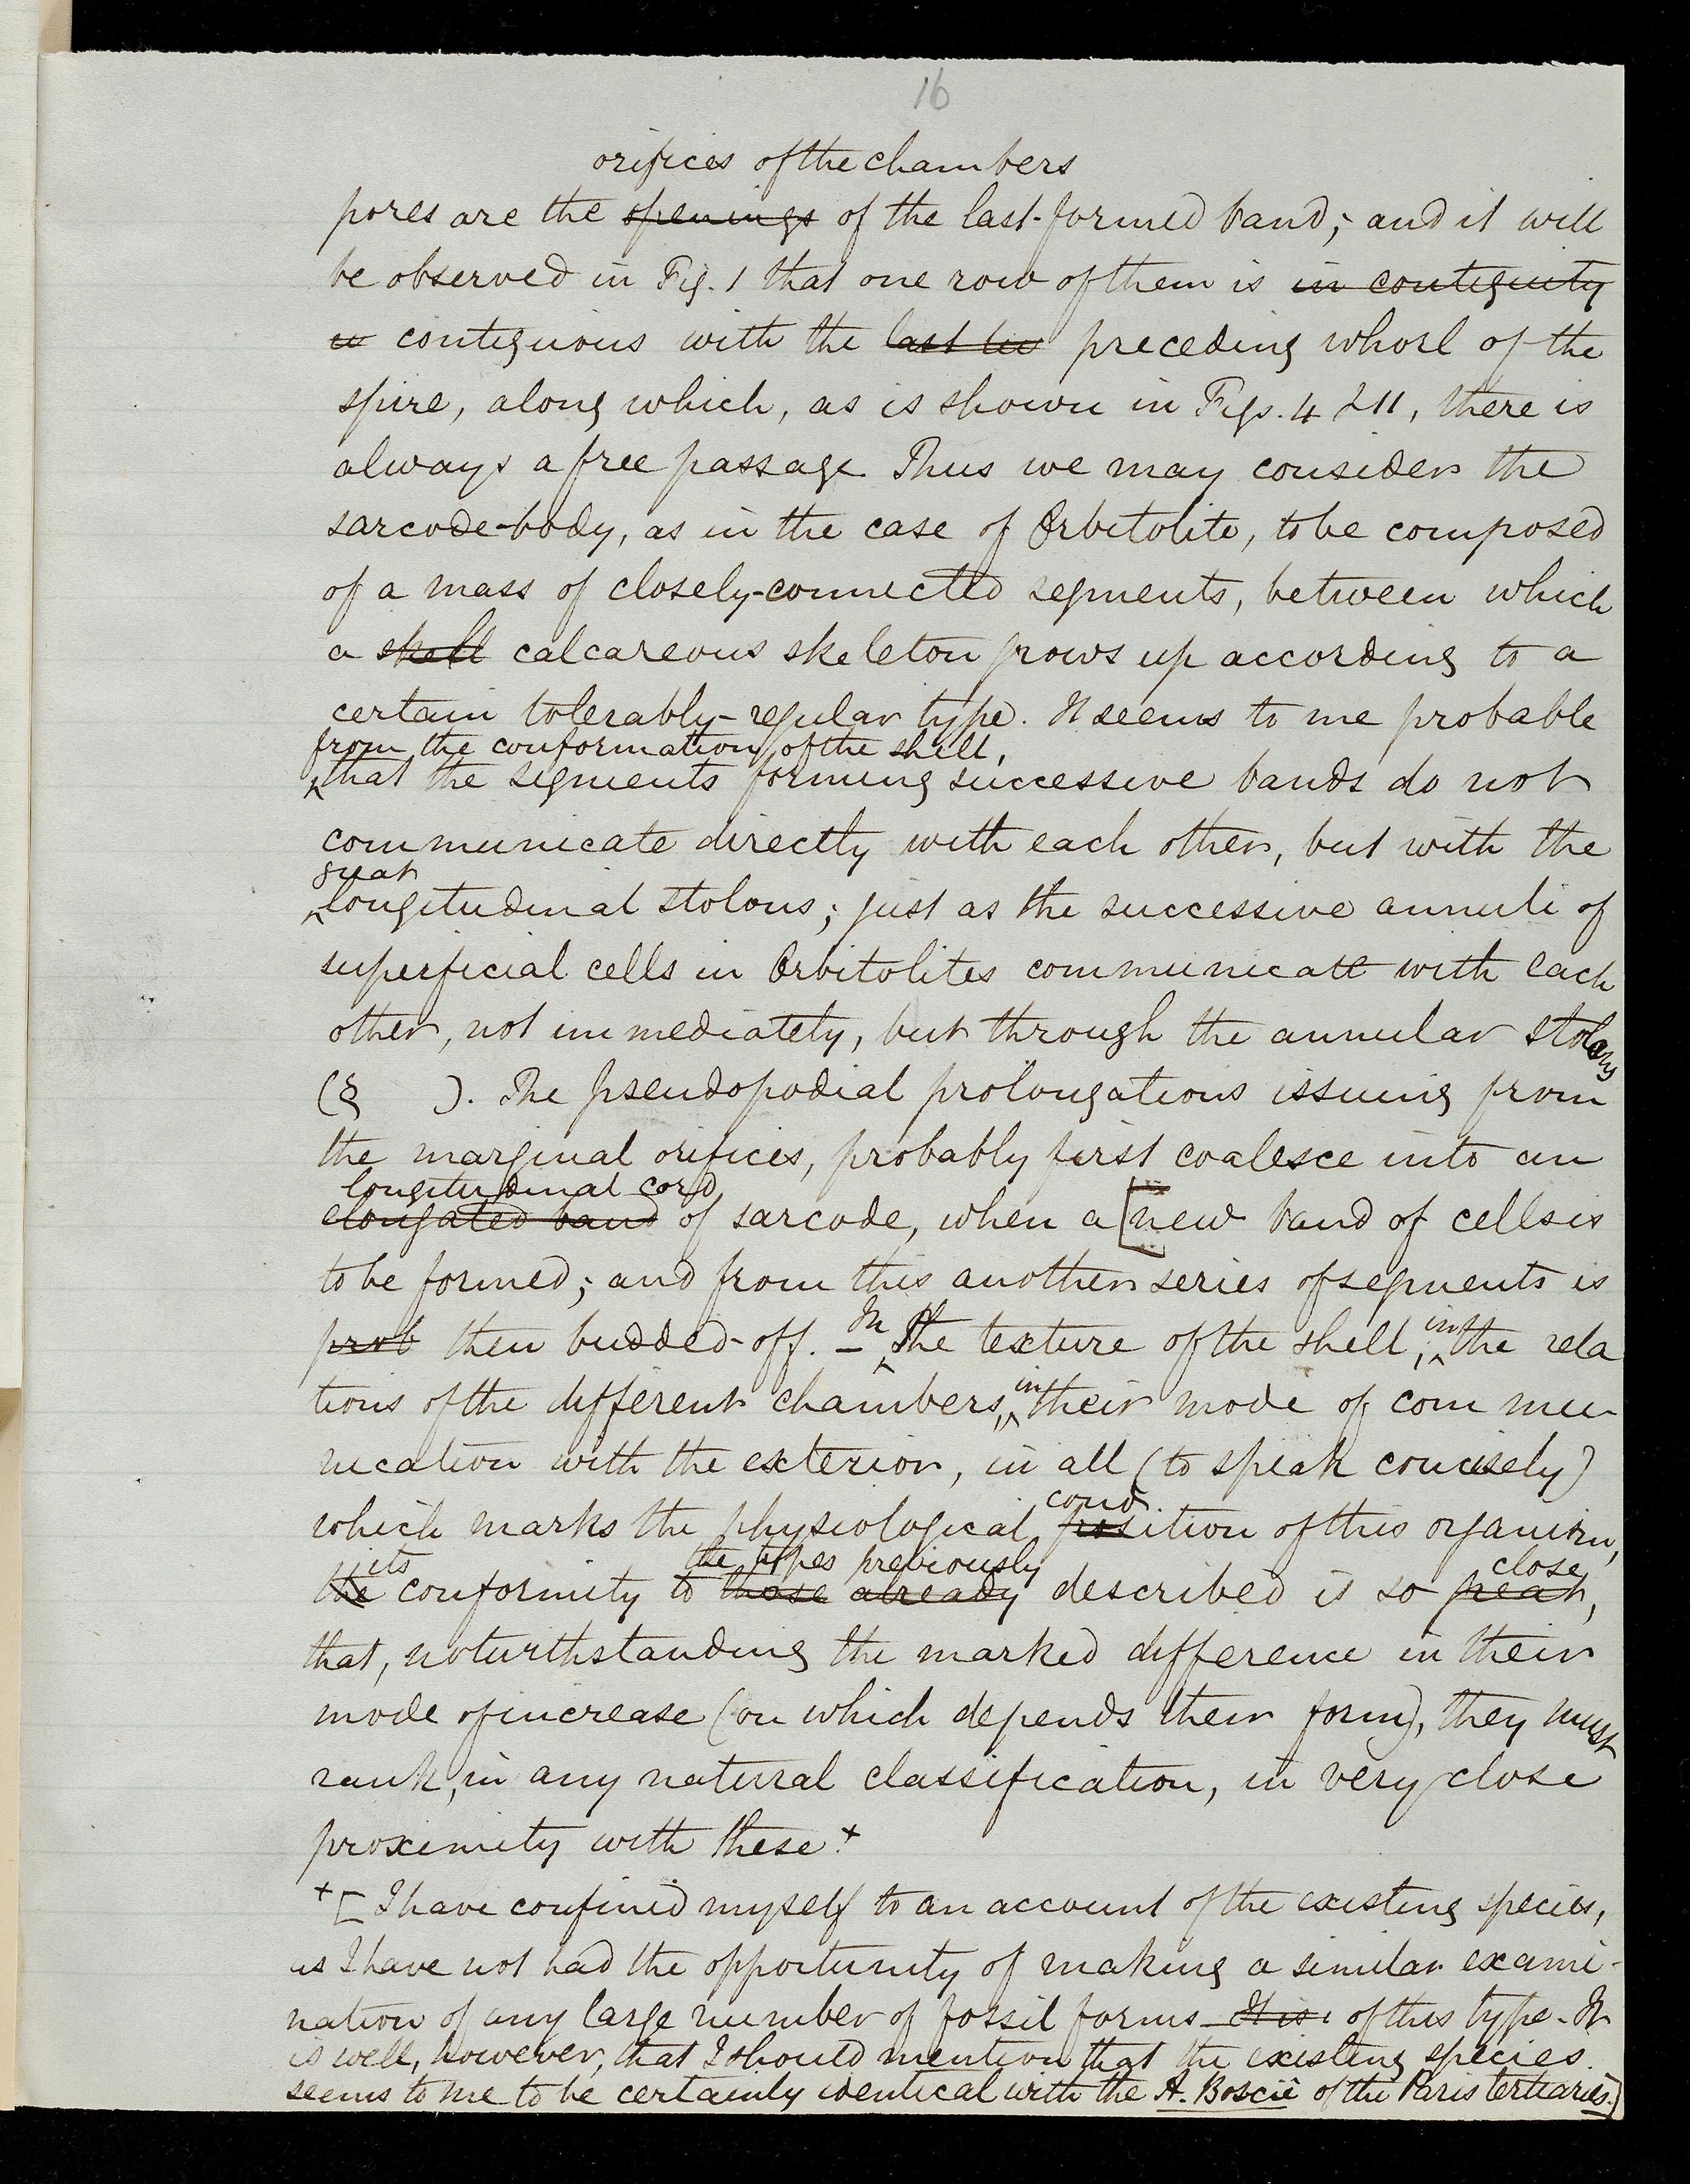 16
orifices of the chambers
pores are the openings of the last-formed band; and it will
be observed in Fig. 1 that one row of them is in contiguity
contiguous with the last preceding whorl of the
spire, along which, as is shown in Figs. 4 & 11, there is
always a free passage. Thus we may consider the
sarcode-body, as in the case of Orbitolite, to be composed
of a mass of closely-connected segments, between which
a shell calcareous skeleton grows up according to a
certain tolerably-regular type. It seems to me probable
from the conformation of the shell,
that the segments forming successive bands do not
communicate directly with each other, but with the
great
longitudinal stolons; just as the successive annuli of
superficial cells in Orbitolites communicate with each
other, not immediately, but through the annular stolons
(§ ). The pseudopodial prolongations issuing from
the marginal orifices, probably first coalesce into an
longitudinal cord
elongated band of sarcode, when a [new band of cells is
to be formed; and from this another series of segments is
prob then budded-off. – In the texture of the shell, in the rela
tions of the different chambers, in their mode of commu-
nication with the exterior, in all (to speak concisely)
cond
which marks the physiological position of this organism,
its the types previously close
the conformity to those already described is so great,
that, notwithstanding the marked difference in their
mode of increase (on which depends their form), they must
rank, in any natural classification, in very close
proximity with these.+
+ [I have confined myself to an account of the existing species,
as I have not had the opportunity of making a similar exami-
nation of any large number of fossil forms – It is of this type. It
is well, however, that I should mention that the existing species
seems to me to be certainly identical with the A. Boscii of the Paris tertiaries.]